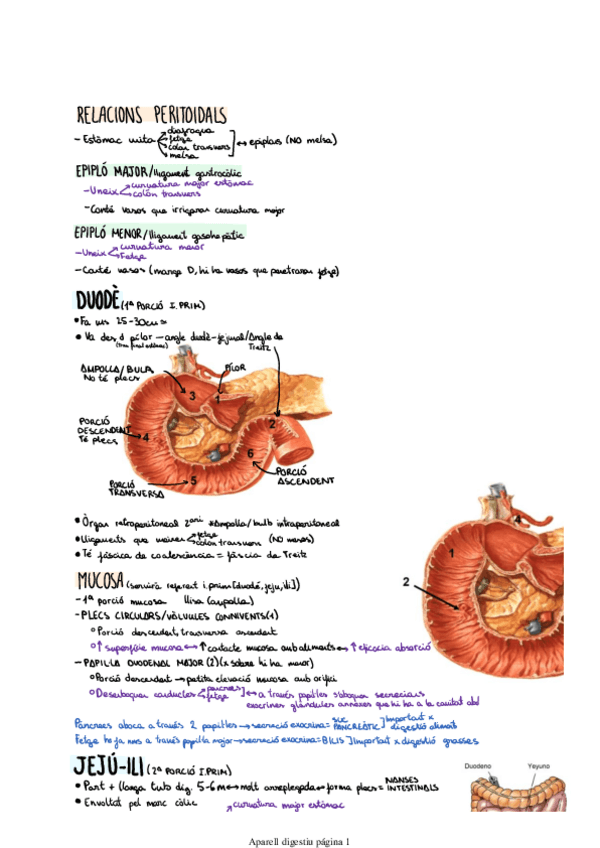 RELACIONS PERITOIDALS
- Estómac unita diafragma
fetge
colon transvers
melsa
↔ epiplons (NO melsa)
EPIPLÓ MAJOR/lligament gastrocòlic
- Uneix curvatura major estómac
colón transvers
- Conté vasos que irriguen curvatura major
EPIPLÓ MENOR/lligament
- Uneix curvatura menor
Fetge
- Conté vasos (marge D, hi ha vasos que penetraran fetge)
DUODÈ (1ª PORCIÓ I. PRIM)
• Fa uns 25-30cm
• Va des d pílor — angle duodè-jejunal/Angle de Treitz
AMPOLLA/BULB
No té plecs
PÍLOR
3
1
2
PORCIÓ DESCENDENT
Té plecs
4
6
5
PORCIÓ ASCENDENT
PORCIÓ TRANSVERSA
• Òrgan retroperitoneal 2ari *Ampolla/bulb intraperitoneal
• Lligaments que uneixen fetge
colon transvers
(NO nervos)
• Té fáscia de coalescència = fáscia de Treitz
4
1
2
MUCOSA (servirà referent i.prim [duodé, jeju, ili])
- 1ª porció mucosa llisa (ampolla)
- PLECS CIRCULARS/VÀLVULES CONNIVENTS(1)
° Porció descendent, transversa ascendent
° ↑ superfície mucosa ↔ ↑ contacte mucosa amb aliments ↔ ↑ eficàcia absorció
- PAPILLA DUODENAL MAJOR (2) (x sobre hi ha menor)
° Porció descendent → petita elevació mucosa amb orifici
° Desemboquen conductes pancrees
fetge
↔ a través papil·les s'aboquen secrecions
exocrines glàndules annexes que hi ha a la cavitat abd
Páncrees aboca a través 2 papil·les → secreció exocrina = SUC PANCREÀTIC] Important x digestió aliments
Fetge ho fa nms a través papil·la major → secreció exocrina = BILIS ] Important x digestió grasses
JEJÚ-ILI (2ª PORCIÓ I.PRIM)
• Part + llarga tubo dig. 5-6 m ↔ molt arreplegada ↔ forma plecs = NANSES INTESTINALS
• Envoltat pel marc còlic
curvatura major estómac
Duodeno
Yeyuno
Aparell digestiu página 1